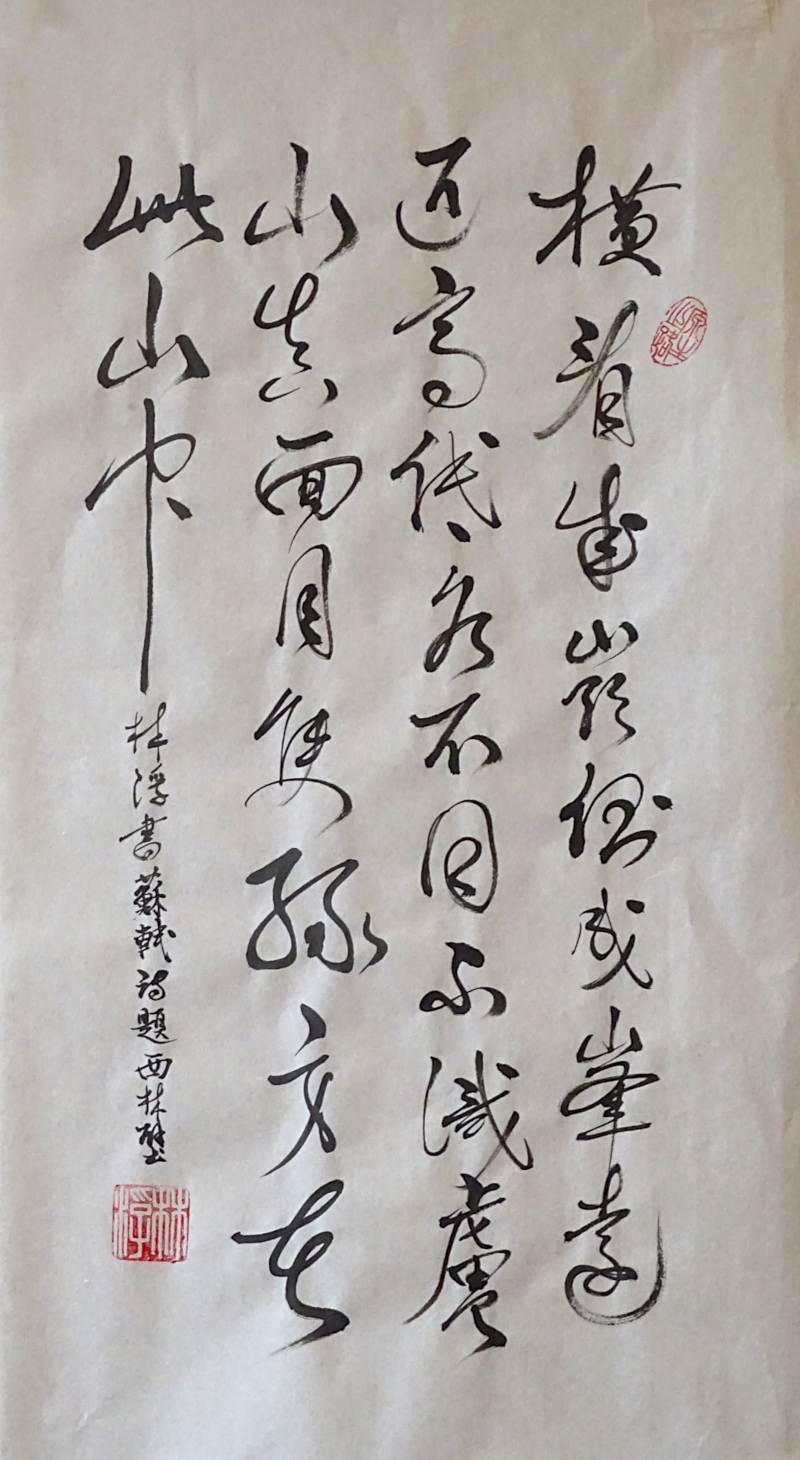 橫看成嶺側成峯遠
近高低各不同不識廬
山真面目隻緣身在
此山中
林浮書蘇軾詩題西林壁
林浮